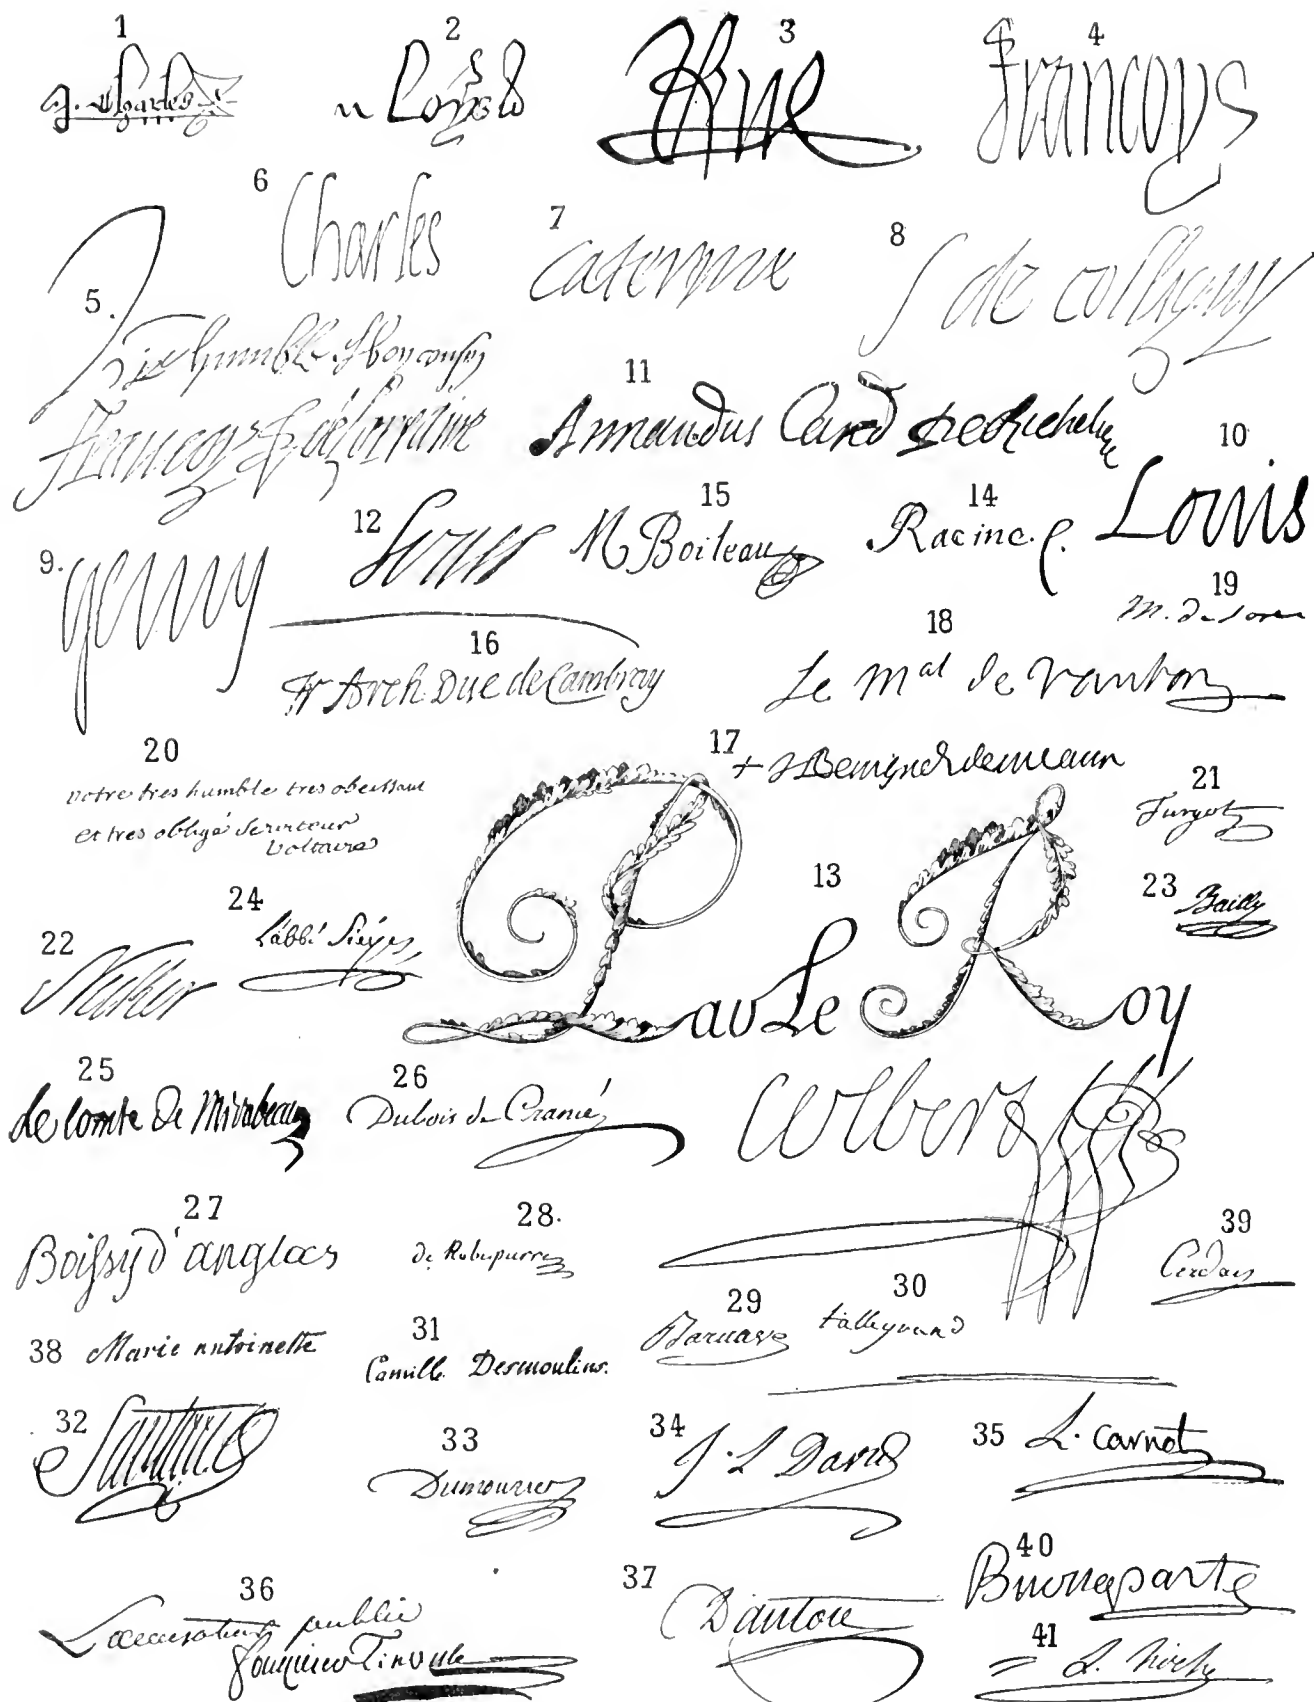 1
Charles
2
Loys
3
4
Francoys
6
Charles
7
Caterine
8
de colligny
5.
humble
Francoys de Lorraine
11
Armandus Card de Richelieu
10
Louis
12
Louis
15
Boileau
14
Racine.
9.
henry
19
M. de
18
Le Mal de Vauban
16
Fr Arch Duc de Cambray
17
+ J Benigne de meaux
20
votre tres humble tres obeissant
et tres obligé serviteur
voltaire
21
Turgot
13
Par Le Roy
Colbert
23
Bailly
24
L'abbé Sieyes
22
Necker
25
Le Comte de Mirabeau
26
Dubois de Crancé
27
Boissy d'anglas
28.
de Robespierre
39
Corday
29
Barnave
30
talleyrand
38
Marie antoinette
31
Camille Desmoulins.
32
Santerre
33
Dumouriez
34
J. L David
35
L. Carnot
36
L'accusateur public
Fouquier Tinville
37
Danton
40
Buonaparte
41
L. hoche